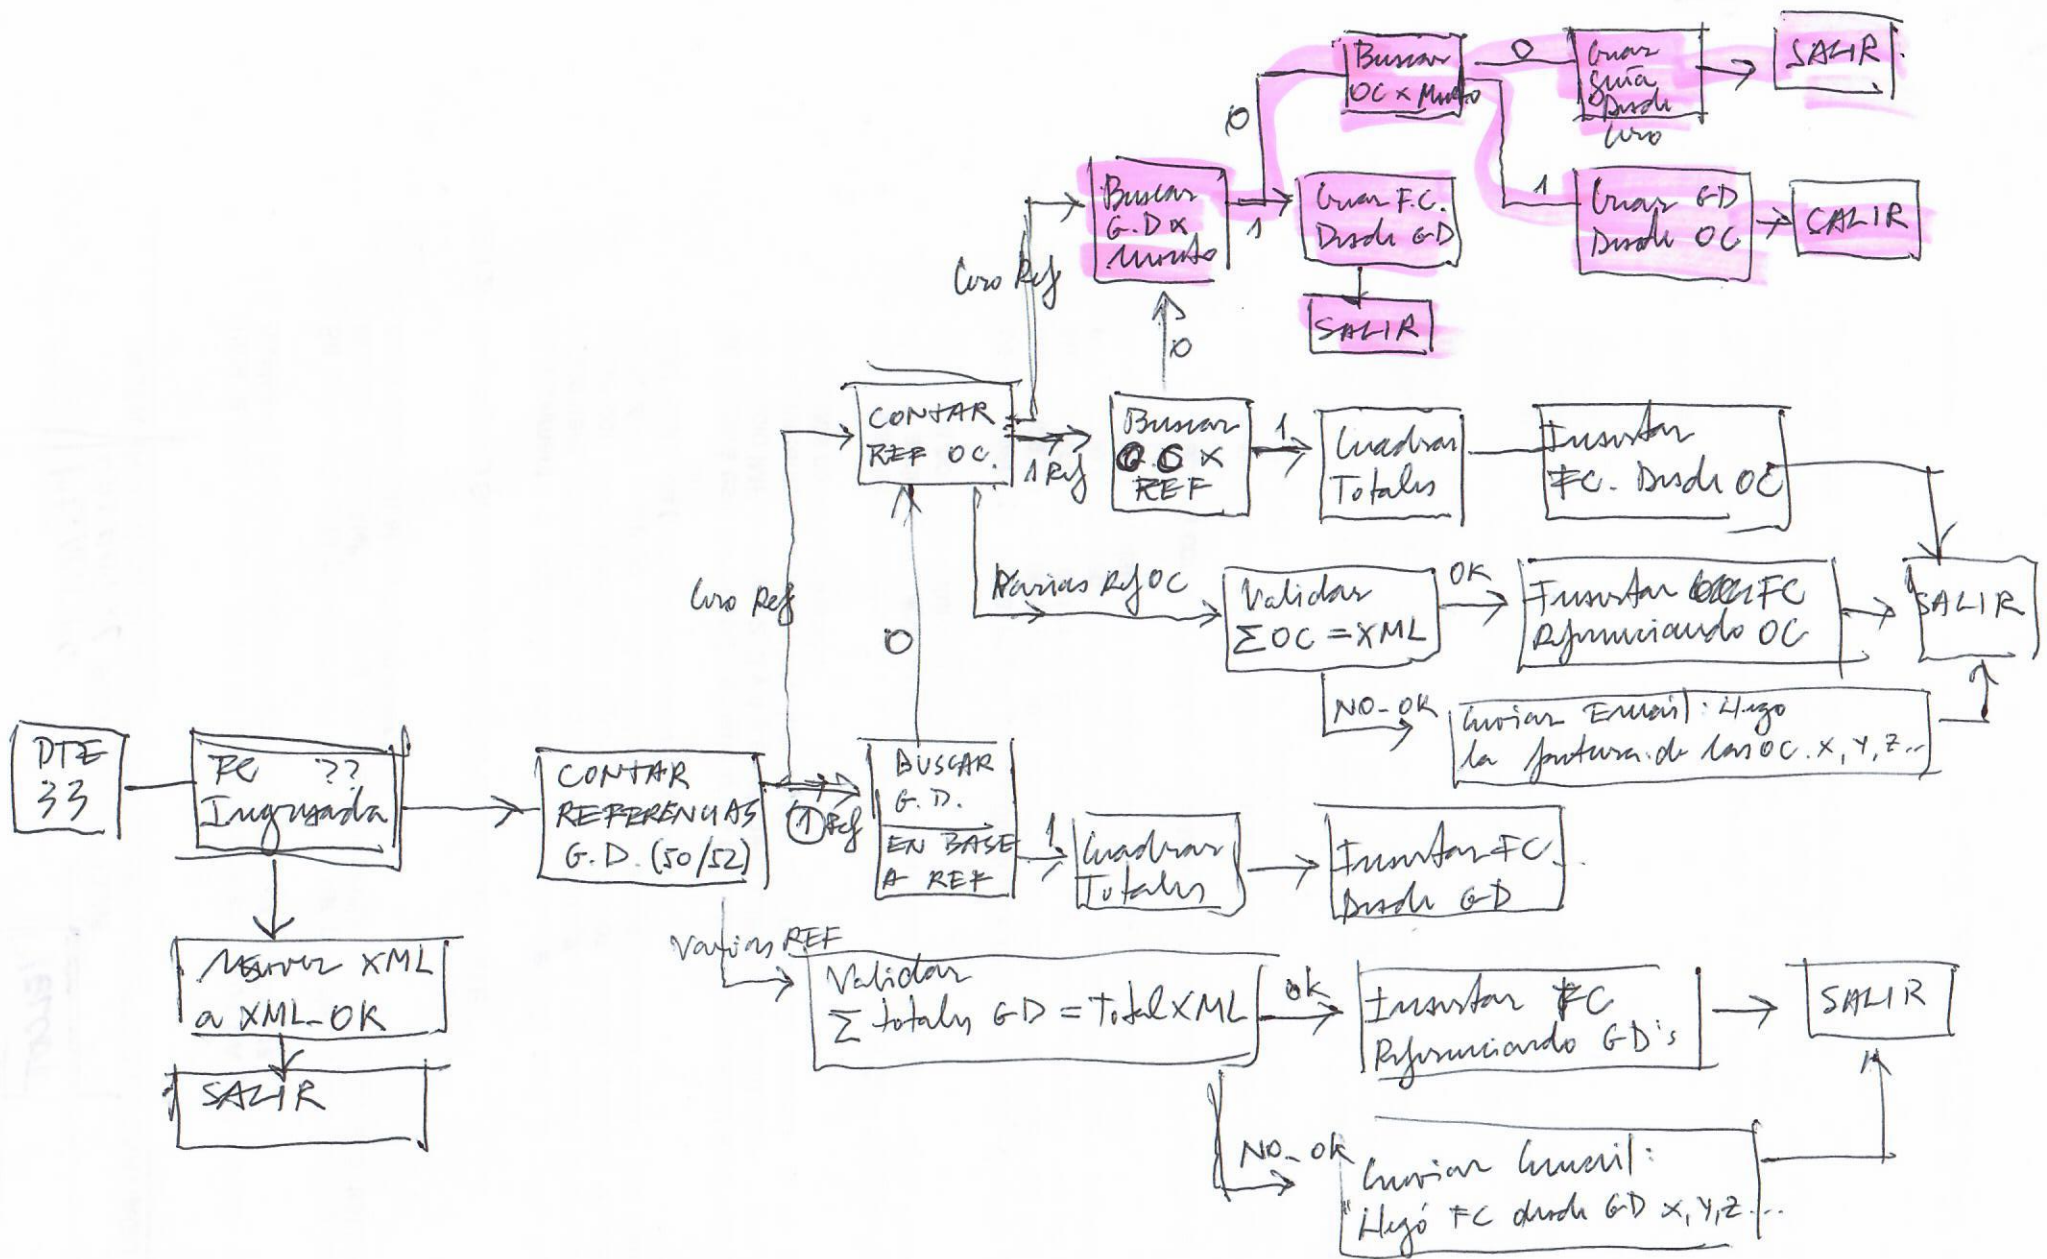 Buscar
OC x Monto
0
Crear
Guía
Desde
Cero
SALIR
0
Buscar
G.D x
Monto
1
Crear F.C.
Desde GD
1
Crear GD
Desde OC
SALIR
Cero Ref
SALIR
0
CONTAR
REF OC.
1 Ref
Buscar
O.C x
REF
1
Cuadrar
Totales
Insertar
FC. Desde OC
Cero Ref
0
Varias Ref OC
Validar
Σ OC = XML
OK
Insertar FC
Referenciando OC
SALIR
NO-OK
Enviar Email: Llego
la factura de las OC. X, Y, Z...
DTE
33
FC ??
Ingresada
CONTAR
REFERENCIAS
G.D. (50/52)
1 Ref
BUSCAR
G.D.
EN BASE
A REF
1
Cuadrar
Totales
Insertar FC
Desde GD
Mover XML
a XML-OK
SALIR
Varias REF
Validar
Σ totales GD = Total XML
OK
Insertar FC
Referenciando GD's
SALIR
NO-OK
Enviar Email:
Llegó FC desde GD X, Y, Z...